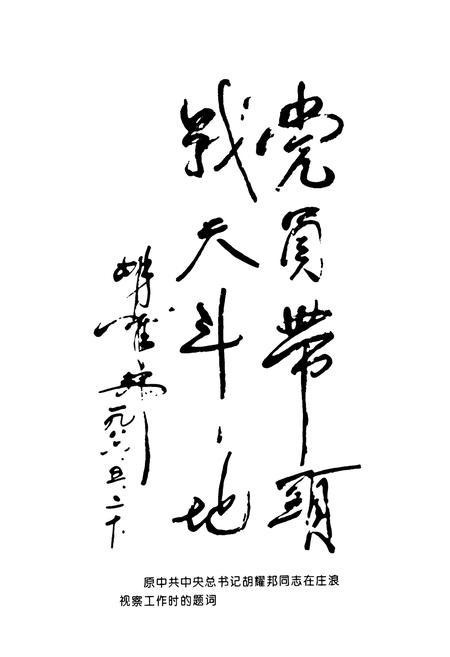 党员帶頭
战天斗地
胡耀邦
一九八六.五.二十.
原中共中央总书记胡耀邦同志在庄浪
视察工作时的题词